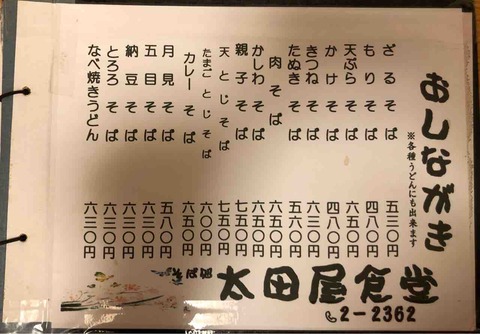 おしながき
※各種うどんにも出来ます
ざるそば 五三〇円
もりそば 四八〇円
天ぷらそば 六五〇円
かけそば 四八〇円
きつねそば 六三〇円
たぬきそば 五六〇円
肉そば 六五〇円
かしわそば 六五〇円
親子そば 七五〇円
天とじそば 七五〇円
たまごとじそば 六〇〇円
カレーそば 六五〇円
月見そば 五八〇円
五目そば 六三〇円
納豆そば 六三〇円
とろろそば 六三〇円
なべ焼きうどん 六三〇円
そば処 太田屋食堂
2-2362